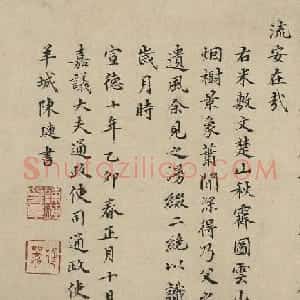 流安在哉
右米敷文楚山秋霽圖雲山
烟樹景象蕭閒深得乃父之
遺風余見之當綴二絕以識
歲月時
宣德十年乙卯春正月十日
嘉議大夫通政使司通政使
羊城陳璉書
Shufaziliao.com